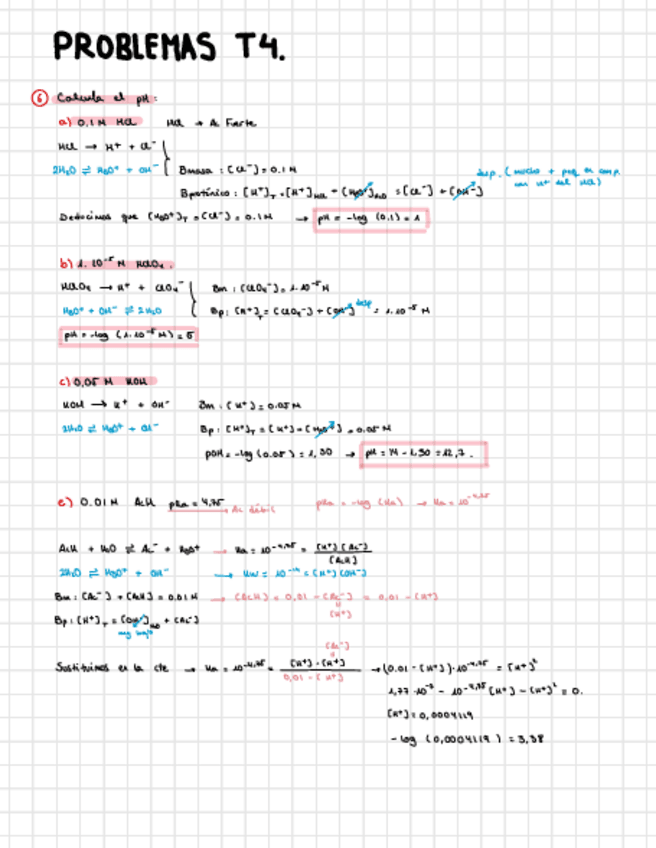 PROBLEMAS T4.
6 Calcula el pH:
a) 0,1 M HCl HCl → Ac Fuerte
HCl → H⁺ + Cl⁻
2H₂O ⇌ H₃O⁺ + OH⁻ Bmasa: [Cl⁻] = 0.1 M
Bprotónico: [H⁺]T = [H⁺]HCl + [H₃O⁺]H₂O = [Cl⁻] + [OH⁻]
desp. (mucho + peq en comp
con H⁺ del HCl)
Deducimos que [H₃O⁺]T = [Cl⁻] = 0.1 M → pH = -log (0.1) = 1
b) 1. 10⁻⁵ M HClO₄.
HClO₄ → H⁺ + ClO₄⁻ Bm: [ClO₄⁻] = 1.10⁻⁵ M
H₃O⁺ + OH⁻ ⇌ 2H₂O Bp: [H⁺]T = [ClO₄⁻] + [OH⁻] desp = 1.10⁻⁵ M
pH = -log (1.10⁻⁵ M) = 5
c) 0,05 M KOH
KOH → K⁺ + OH⁻ Bm: [K⁺] = 0.05 M
2H₂O ⇌ H₃O⁺ + OH⁻ Bp: [H⁺]T = [K⁺] + [H₃O⁺] = 0.05 M
pOH = -log (0.05) = 1,30 → pH = 14 - 1,30 = 12,7.
e) 0.01 M AcH pKa = 4,75 → Ac débil pKa = -log (Ka) → Ka = 10⁻⁴·⁷⁵
AcH + H₂O ⇌ Ac⁻ + H₃O⁺ → Ka = 10⁻⁴·⁷⁵ = [H⁺][Ac⁻] / [AcH]
2H₂O ⇌ H₃O⁺ + OH⁻ → Kw = 10⁻¹⁴ = [H⁺][OH⁻]
Bm: [Ac⁻] + [AcH] = 0.01 M → [AcH] = 0,01 - [Ac⁻] = 0.01 - [H⁺]
[H⁺]
Bp: [H⁺]T = [OH⁻]H₂O + [Ac⁻]
[Ac⁻]
Sustituimos en la cte → Ka = 10⁻⁴·⁷⁵ = [H⁺]·[H⁺] / 0,01 - [H⁺] → (0.01 - [H⁺])·10⁻⁴·⁷⁵ = [H⁺]²
[H⁺] = 0,0004119
-log (0,0004119) = 3,38